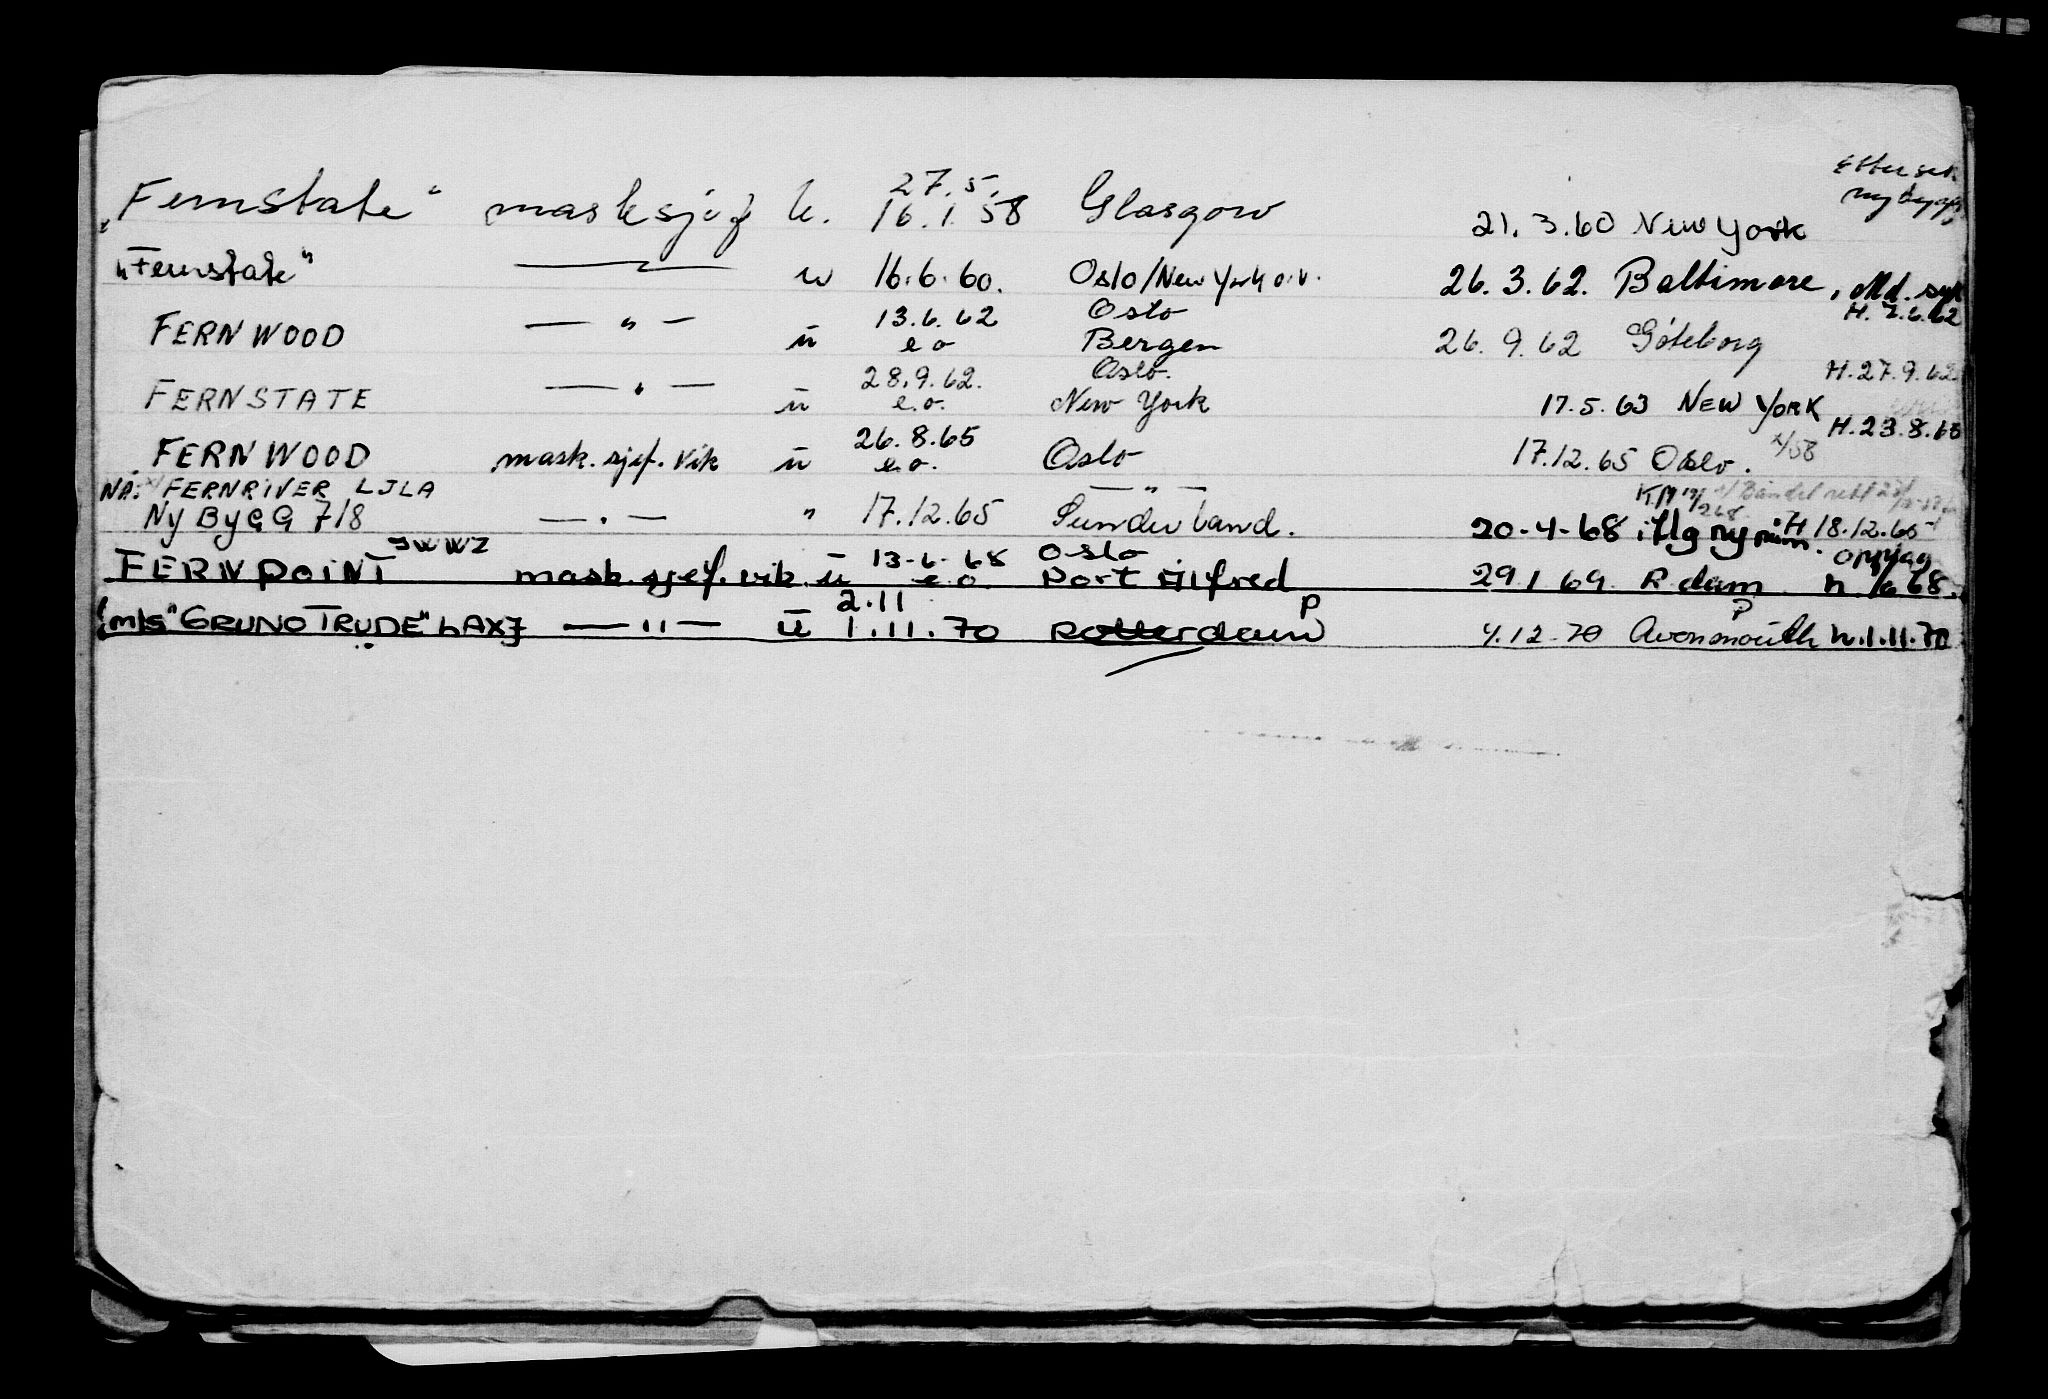 27.5.
"Fernstate" masksjef u. 16.1.58 Glasgow 21.3.60 New York
"Fernstate" — " — u 16.6.60. Oslo/New York o.v. 26.3.62. Baltimore, Md.
13.6.62 Oslo H. 7.6.62
FERNWOOD — " — ü e o Bergen 26.9.62 Göteborg
28.9.62. Oslo. H.27.9.62.
FERNSTATE — " — ü e.o. New York 17.5.63 NEW YORK
26.8.65 H.23.8.65
FERNWOOD mask.sjef. vik ü e.o. Oslo 17.12.65 Oslo. x/58
NÅ: FERNRIVER LJLA — " —
Ny BYGG 718 — " — " 17.12.65 Sunderland. 20-4-68 iflg ny H 18.12.65
JWWZ 13-6-68 Oslo
FERNPOINT mask.sjef. vik ü e o Port Alfred 29.1.69. R.dam h. 68.
2.11 P P
(m/s "GRUNO TRUDE" LAXJ — " — ü 1.11.70 Rotterdam 4.12.70 Avonmouth h.1.11.70